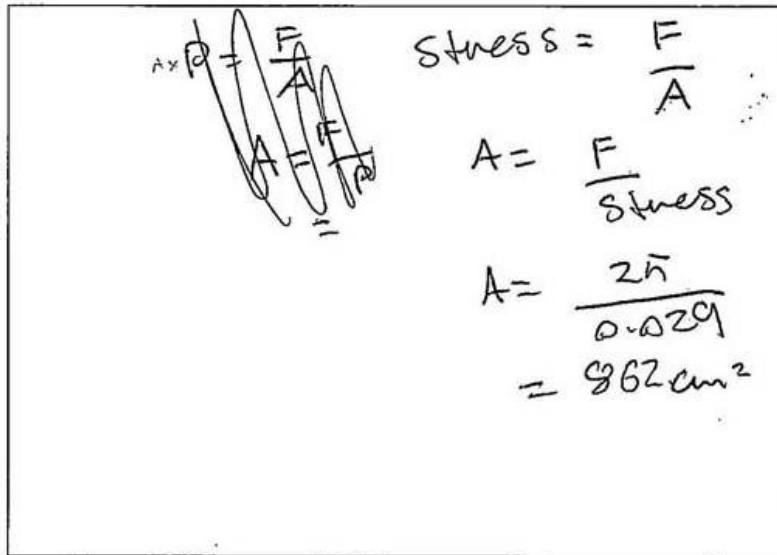 A× P = F/A
A = F/P
=
stress = F/A
A = F/stress
A = 25/0.029
= 862 cm²